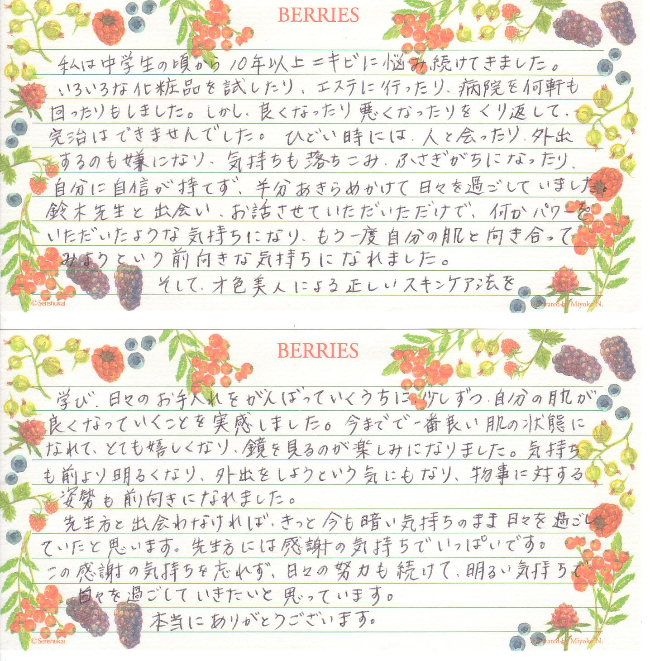 BERRIES
私は中学生の頃から10年以上ニキビに悩み続けてきました。
いろいろな化粧品を試したり、エステに行ったり、病院を何軒も
回ったりもしました。しかし、良くなったり悪くなったりをくり返して、
完治はできませんでした。ひどい時には、人と会ったり、外出
するのも嫌になり、気持ちも落ちこみ、ふさぎがちになったり、
自分に自信が持てず、半分あきらめかけて日々を過ごしていました。
鈴木先生と出会い、お話させていただいただけで、何かパワーを
いただいたような気持ちになり、もう一度自分の肌と向き合って
みようという前向きな気持ちになれました。
そして、才色美人による正しいスキンケア法を
©Seieshukai
Illustrated by Miyoko N.
BERRIES
学び、日々のお手入れをがんばっていくうちに、少しずつ、自分の肌が
良くなっていくことを実感しました。今までで一番良い肌の状態に
なれて、とても嬉しくなり、鏡を見るのが楽しみになりました。気持ち
も前より明るくなり、外出をしようという気にもなり、物事に対する
姿勢も前向きになれました。
先生方と出会わなければ、きっと今も暗い気持ちのまま日々を過ごし
ていたと思います。先生方には感謝の気持ちでいっぱいです。
この感謝の気持ちを忘れず、日々の努力も続けて、明るい気持ちで
日々を過ごしていきたいと思っています。
本当にありがとうございます。
by Miyoko N.